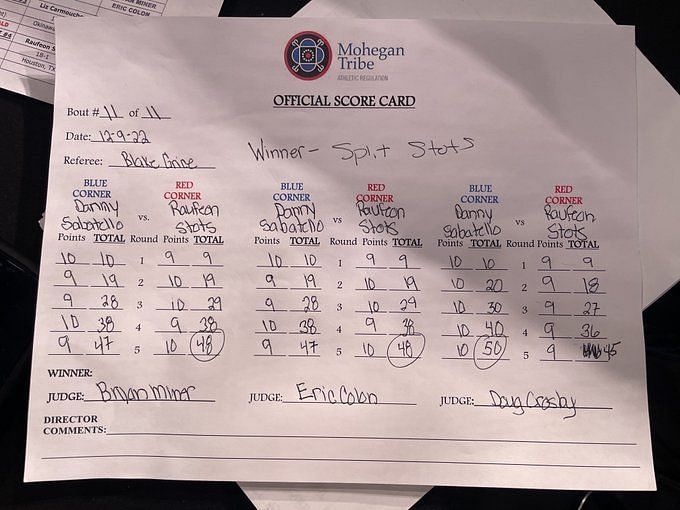 Liz Carmouche
Okinawa
Raufeon S
18-1
Houston, TX
MINER
ERIC COLON
Mohegan
Tribe
ATHLETIC REGULATION
OFFICIAL SCORE CARD
Bout # 11 of 11
Date: 12-9-22
Referee: Blake Grice
Winner - Split Stots
BLUE CORNER RED CORNER BLUE CORNER RED CORNER BLUE CORNER RED CORNER
Danny Sabatello vs. Raufeon Stots Danny Sabatello vs Raufeon Stots Danny Sabatello vs Raufeon Stots
Points TOTAL Round Points TOTAL Points TOTAL Round Points TOTAL Points TOTAL Round Points TOTAL
10 10 1 9 9 10 10 1 9 9 10 10 1 9 9
9 19 2 10 19 9 19 2 10 19 10 20 2 9 18
9 28 3 10 29 9 28 3 10 29 10 30 3 9 27
10 38 4 9 38 10 38 4 9 38 10 40 4 9 36
9 47 5 10 48 9 47 5 10 48 10 50 5 9 45
WINNER:
JUDGE: Bryan Miner JUDGE: Eric Colon JUDGE: Doug Crosby
DIRECTOR
COMMENTS: